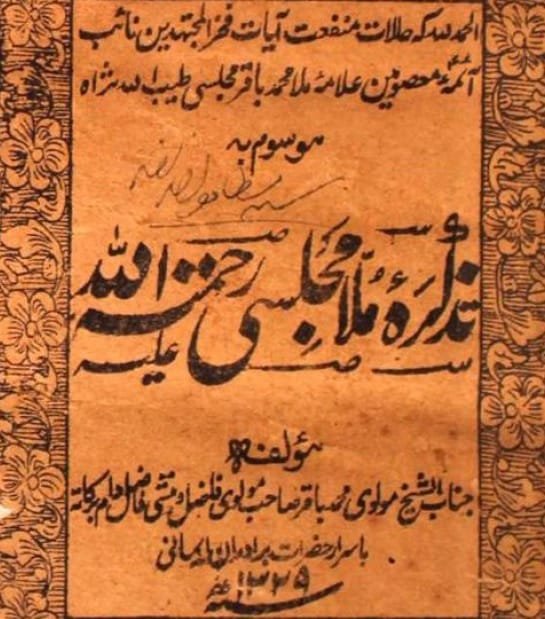 الحمد للہ کہ حالات منفعت آیات فخر المجتہدین نائب
آئمۂ معصومین علامۂ ملا محمد باقر مجلسی طیب اللہ نژاہ
موسوم بہ
تذکرۂ ملا مجلسی رحمتہ اللہ
علیہ
مؤلفہ
جناب الشیخ مولوی محمد باقر صاحب مولوی فاضل و منشی فاضل دام برکاتہ
باسرار حضرات برادران ایمانی
سنہ ۱۳۳۵